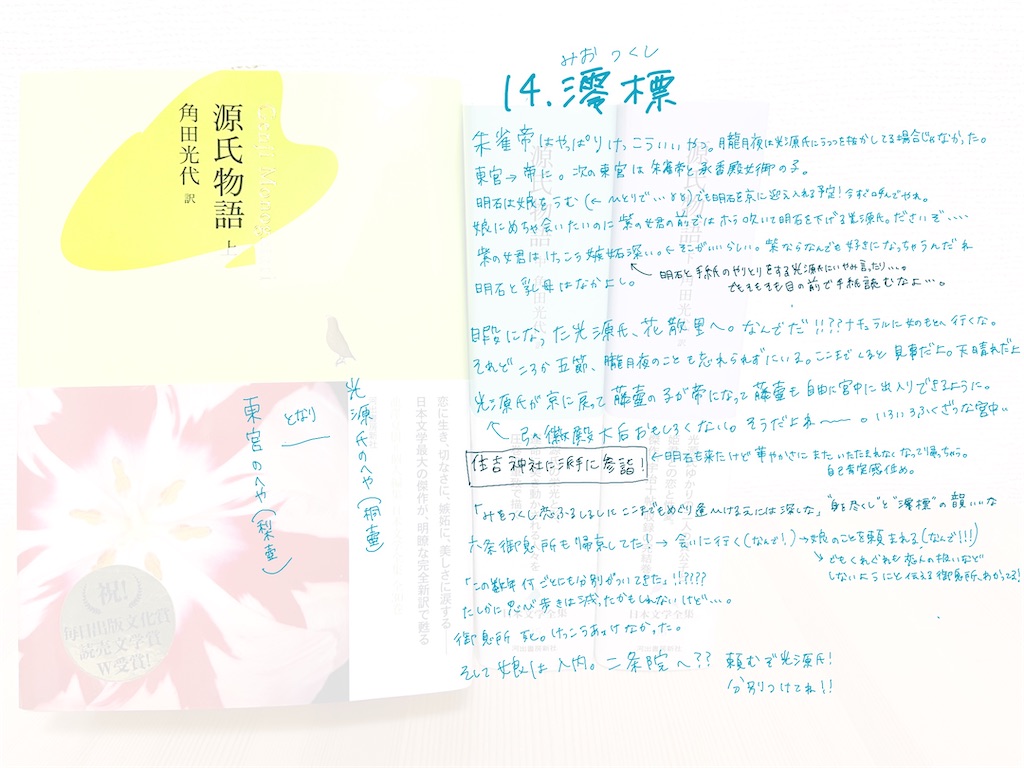 みおつくし
14. 澪標
朱雀帝はやっぱりけっこういいやつ。朧月夜は光源氏にうつつを抜かしてる場合じゃなかった。
東宮→帝に。次の東宮は朱雀帝と承香殿女御の子。
明石は娘をうむ(←ひとりで…)でも明石を京に迎え入れる予定!今すぐ呼んでやれ。
娘にめちゃ会いたいのに紫の女君の前ではホラ吹いて明石を下げる光源氏。ださいぞ‥‥
紫の女君はけっこう嫉妬深い。←そこがいいらしい。紫ならなんでも好きになっちゃうんだね
明石と手紙のやりとりをする光源氏にいやみ言ったり…。
でもそもそも目の前で手紙読むなよ…。
明石と乳母はなかよし。
日暇になった光源氏、花散里へ。なんでだ!!??ナチュラルに女のもとへ行くな。
それどころか五節、朧月夜のことも忘れられずにいる。ここまでくると見事だよ。天晴れだよ
光源氏が京に戻って藤壺の子が帝になって藤壺も自由に宮中に出入りできるように。
弘徽殿大后おもしろくない。そうだよね〜〜。いろいろふくざつな宮中…
住吉神社に派手に参詣!
←明石も来たけど華やかさにまたいたたまれなくなって帰っちゃう。
自己肯定感低め。
「みをつくし恋ふるしるしにここまでもめぐり逢ひける えには深しな」"身を尽くし"と"澪標"の韻いいな
六条御息所も帰京してた!→会いに行く(なんで!)→娘のことを頼まれる(なんで!!!)
でもくれぐれも恋人の扱いなど
しないようにと伝える御息所、わかってる!
「この数年何ごとにも分別がついてきた」!!????
たしかに忍び歩きは減ったかもしれないけど…。
御息所 死。けっこうあっけなかった。
そして娘は入内。二条院へ?? 頼むぞ光源氏!
分別つけてね!!
光源氏のへや(桐壺)
となり
東宮のへや(梨壺)
源氏物語 上
角田光代 訳
恋に生き、切なさに、嫉妬に、美しさに涙する──
日本文学最大の傑作が、明瞭な完全新訳で甦る
祝!
毎日出版文化賞
読売文学賞
W受賞!
日本文学全集
河出書房新社